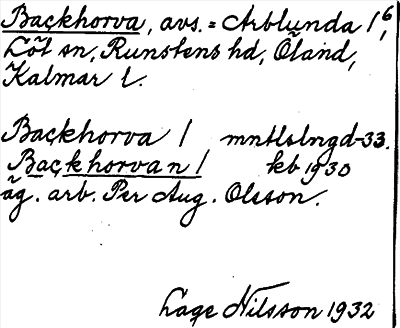 Backhorva, avs. = Arblunda 1⁶,
Löt sn, Runstens hd, Öland,
Kalmar l.
Backhorva / mntlslngd-33.
Backhorvan / kb 1930
äg. arb. Per Aug. Olsson.
Lage Nilsson 1932